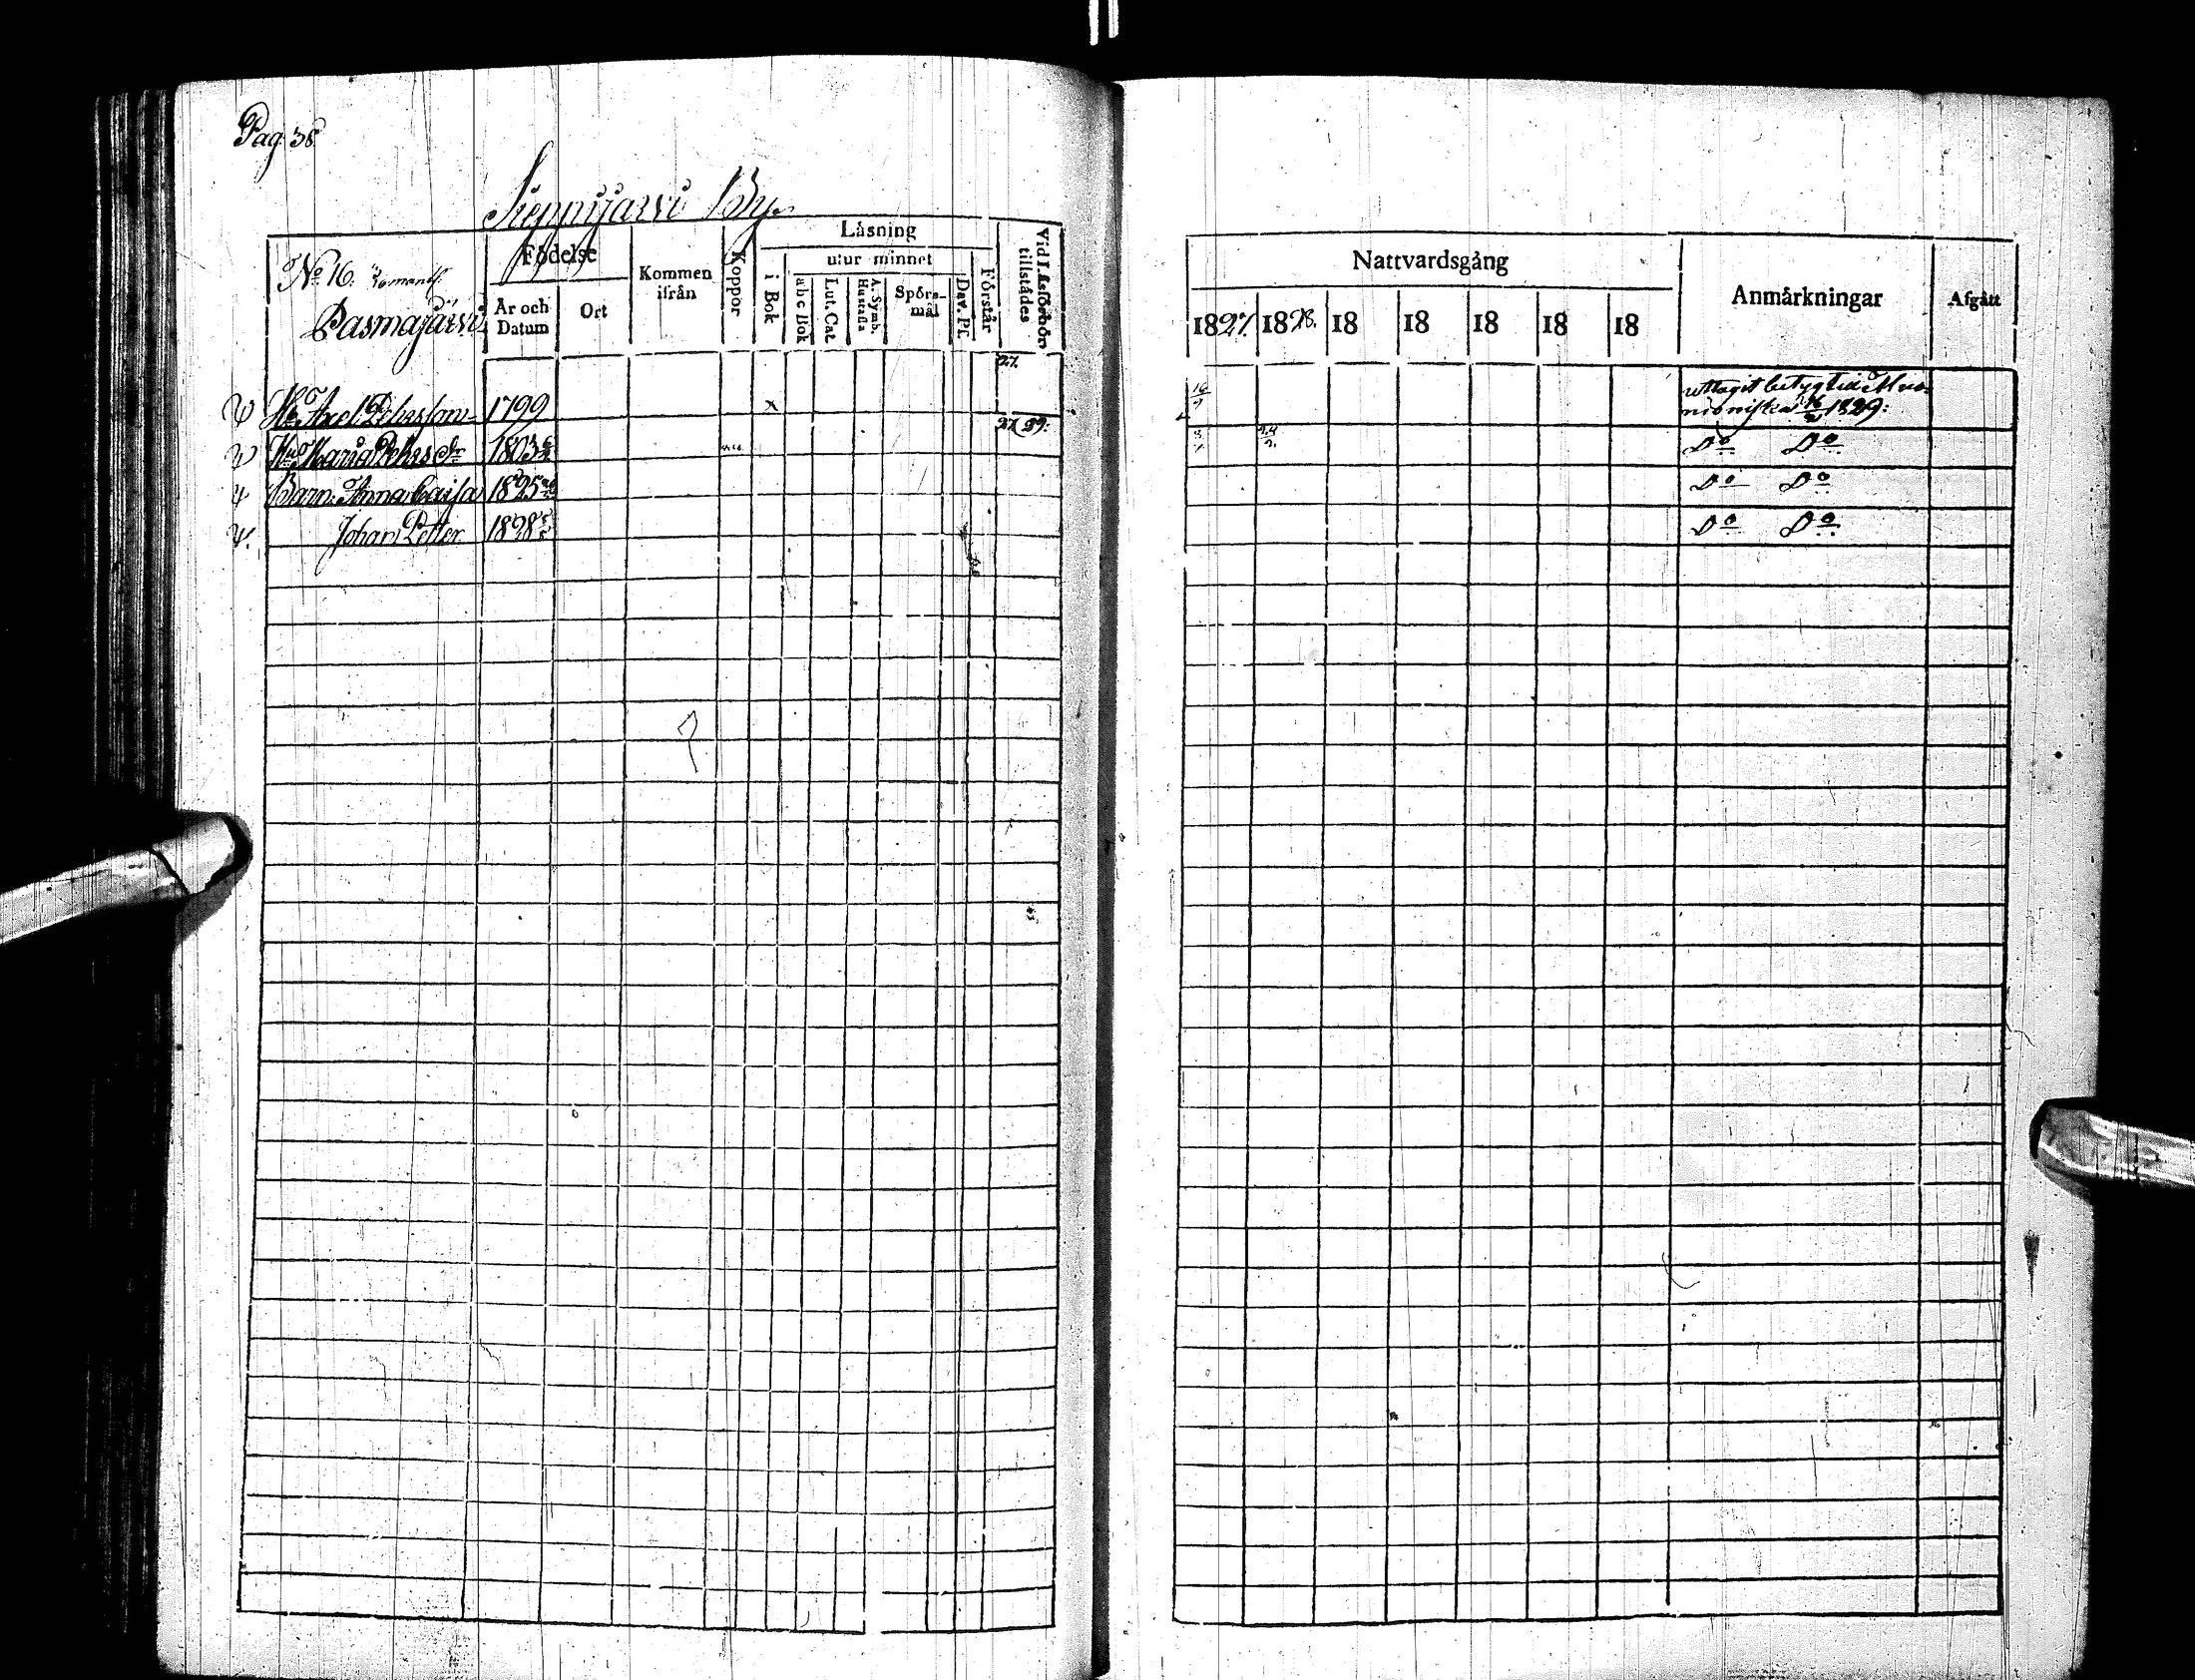 Pag: 38
Sieppijärvi By.
No 16. 3/16 mantl.
Pasmajärvi
Födelse
År och Datum
Ort
Kommen ifrån
Koppor
Läsning
i Bok
utur minnet
abc Bok
Lut. Cat.
A. Symb. Hustafla
Spörsmål
Dav. Ps.
Förstår
Vid Läsförhör tillstädes
27.
Axel Pehrsson 1799 x
27. 29:
Hu Maria Pehrs dr 1803
Barn: Anna Caisa 1825
Johan Petter 1828
Nattvardsgång
1827. 1828. 18 18 18 18 18
Anmärkningar
Afgått
uttagit betyg till Muo-
nioniska 1829:
Do Do
Do Do
Do Do